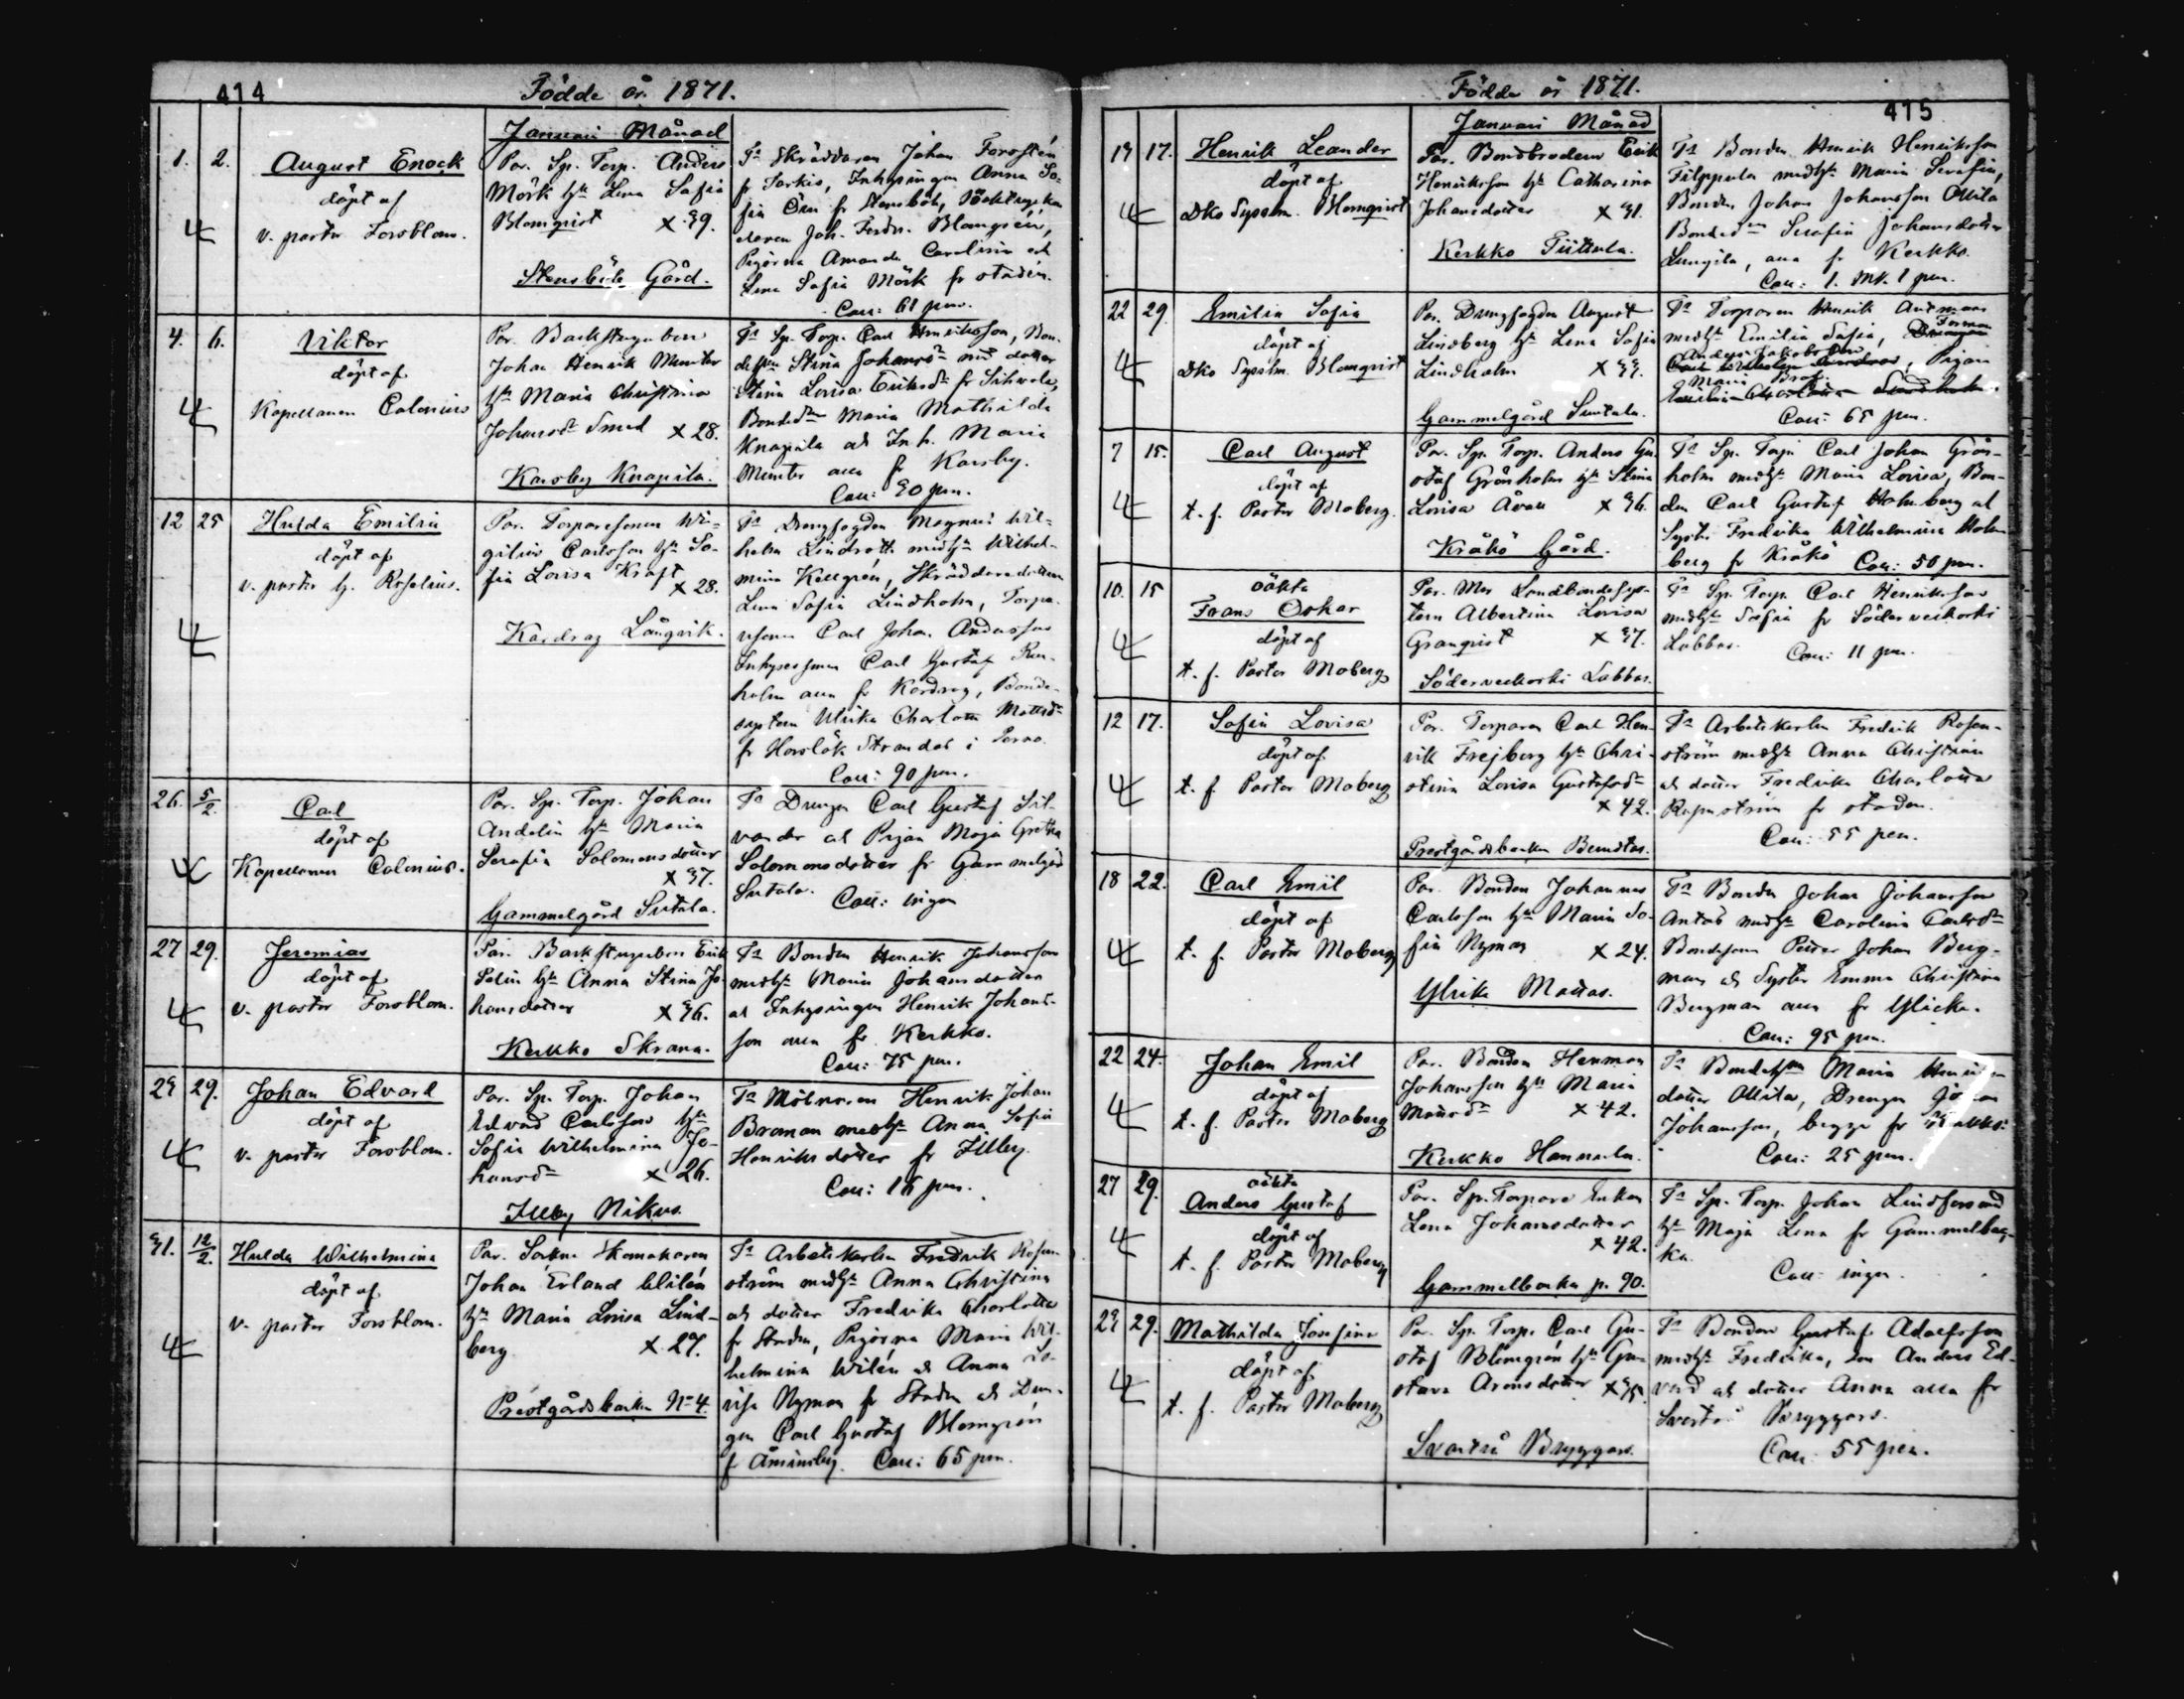 414
Födde år 1871.
Januari Månad
1. 2. August Enock
döpt af
v. pastor Forsblom.
Par. Sp. Torp. Anders
Mörk hu Lena Sofia
Blomqvist x 39.
Stensböle Gård.
Fa Skräddaren Johan Forstén
fr Sarkis, Inhysingen Anna So-
fia Öhn fr Stensböle,
Joh. Ferdn. Blomgrén,
Pigorna Amanda Carolina och
Lena Sofia Mörk fr staden.
Coll: 61 pen.
4. 6. Viktor
döpt af
Kapellanen Calonius
Par. Backstugubon
Johan Henrik Munter
hu Maria Christina
Johansdr Smed x 28.
Karsby Knapila.
Fa Sp. Torp. Carl Henriksson, Bon-
Stina Johansdr med dotter
Stina Lovisa Eriksdr fr
Bondedr Maria Mathilda
Knapila och Inh. Maria
Munter alla fr Karsby.
Coll: 30 pen.
12 25 Hulda Emilia
döpt af
v. pastor Hj. Roselius.
Par. Torparesonen Wi-
gilius Carlsson hu So-
fia Lovisa Kraft
x 28.
Kardrag Långvik.
Fa Drengfogden Magnus Wil-
helm Lindroth medhu Wilhel-
mina Kellgrén, Skräddaredottern
Lena Sofia Lindholm, Torpa-
resonen Carl Johan Andersson
Inhysessonen Carl Gustaf
holm alla fr Kardrag, Bonde-
systern Ulrika Charlotta Mattsdr
fr Horslök Strandas i Perno.
Coll: 90 pen.
26. 5/2. Carl
döpt af
Kapellanen Calonius.
Par. Sp. Torp. Johan
Andelin hu Maria
Serafia Salomonsdotter
x 37.
Gammelgård Sutala.
Fa Drengen Carl Gustaf Sil-
vander och Pigan Maja Gretha
Salomonsdotter fr Gammelgård
Sutala. Coll: ingen
27 29. Jeremias
döpt af
v. pastor Forsblom.
Par. Backstugubon Erik
Selin hu Anna Stina Jo-
hansdotter x 36.
Kerkko Skrana.
Fa Bonden Henrik Johansson
medhu Maria Johansdotter
och Inhysingen Henrik Johans-
son alla fr Kerkko.
Coll: 75 pen.
29 29. Johan Edvard
döpt af
v. pastor Forsblom.
Par. Sp. Torp. Johan
Edvard Carlsson hu
Sofia Wilhelmina Jo-
hansdr x 26.
Illby Nikus.
Fa Mölnaren Henrik Johan
Broman medhu Anna Sofia
Henriksdotter fr Illby.
Coll: 16 pen.
31. 12/2. Hulda Wilhelmina
döpt af
v. pastor Forsblom.
Par. Sockne Skomakaren
Johan Erland Wilén
hu Maria Lovisa Lind-
berg x 27.
Prestgårdsbacken No 4.
Fa Arbetskarlen Fredrik Rosen-
ström medhu Anna Christina
och dotter Fredrika Charlotta
fr Staden, Pigorna Maria Wil-
helmina Wilén och Anna Lo-
visa Nyman fr Staden och Dren-
gen Carl Gustaf Blomgrén
fr Åminsby. Coll: 65 pen.
Födde år 1871.
415
Januari Månad
19 17. Henrik Leander
döpt af
Dko Sysslm. Blomqvist
Par. Bondbrodern Erik
Henriksson hu Catharina
Johansdotter x 31.
Kerkko Tiittula.
Fa Bonden Henrik Henriksson
Filppula medhu Maria Serafia,
Bonden Johan Johansson Ollila
Bondedn Serafia Johansdotter
, alla fr Kerkko.
Coll: 1. mk. 1 pen.
22 29 Emilia Sofia
döpt af
Dko Sysslm. Blomqvist
Par. Drengfogden August
Lindberg hu Lena Sofia
Lindholm x 33.
Gammelgård Sutala.
Fa Torparen Henrik Antman
medhu Emilia Sofia,
Anders Jakobsson
, Pigan
Maria
Coll: 65 pen.
7 15. Carl August
döpt af
t. f. Pastor Moberg.
Par. Sp. Torp. Anders Gu-
staf Grönholm hu Stina
Lovisa Åvall x 36.
Kråkö Gård.
Fa Sp. Torp. Carl Johan Grön-
holm medhu Maria Lovisa, Bon-
den Carl Gustaf Holmberg och
Syster Fredrika Wilhelmina Holm-
berg fr Kråkö Coll: 50 pen.
10. 15 oäkta
Frans Oskar
döpt af
t. f. Pastor Moberg
Par. Mor Landbondesys-
tern Albertina Lovisa
Granqvist x 37.
Söderveckoski Labbas.
Fa Sp. Torp. Carl Henriksson
medhu Sofia fr Söderveckoski
Labbas. Coll: 11 pen.
12 17. Sofia Lovisa
döpt af
t. f. Pastor Moberg
Par. Torparen Carl Hen-
rik Frejberg hu Chri-
stina Lovisa Gustafsdr
x 42.
Prestgårdsbacken Berndtas.
Fa Arbetskarlen Fredrik Rosen-
ström medhu Anna Christina
och dotter Fredrika Charlotta
Rosenström fr staden.
Coll: 55 pen.
18 22. Carl Emil
döpt af
t. f. Pastor Moberg
Par. Bonden Johannes
Carlsson hu Maria So-
fia Nyman x 24.
Ylike Mattas.
Fa Bonden Johan Johansson
Antas medhu Carolina Carlsdr
Bondesonen Petter Johan Berg-
man och Syster Emma Christina
Bergman alla fr Ylike.
Coll: 95 pen.
22 24. Johan Emil
döpt af
t. f. Pastor Moberg
Par. Bonden Herman
Johansson hu Maria
Mattsdr x 42.
Kerkko Hannula.
Fa Maria
dotter Ollila, Drengen Johan
Johansson, begge fr
Coll: 25 pen.
27 29. oäkta
Anders Gustaf
döpt af
t. f. Pastor Moberg
Par. Sp. Torpare Enkan
Lena Johansdotter
x 42.
Gammelbacka p. 90.
Fa Sp. Torp. Johan Lindfors med
hu Maja Lena fr Gammelbac-
ka.
Coll: ingen.
29 29. Mathilda Josefina
döpt af
t. f. Pastor Moberg
Par. Sp. Torp. Carl Gu-
staf Blomgrén hu Gu-
stava Aronsdotter x 35.
Svartså Bryggars.
Fa Bonden Gustaf Adolfsson
medhu Fredrika, son Anders Ed-
vard och dotter Anna alla fr
Svartså Bryggars.
Coll: 55 pen.